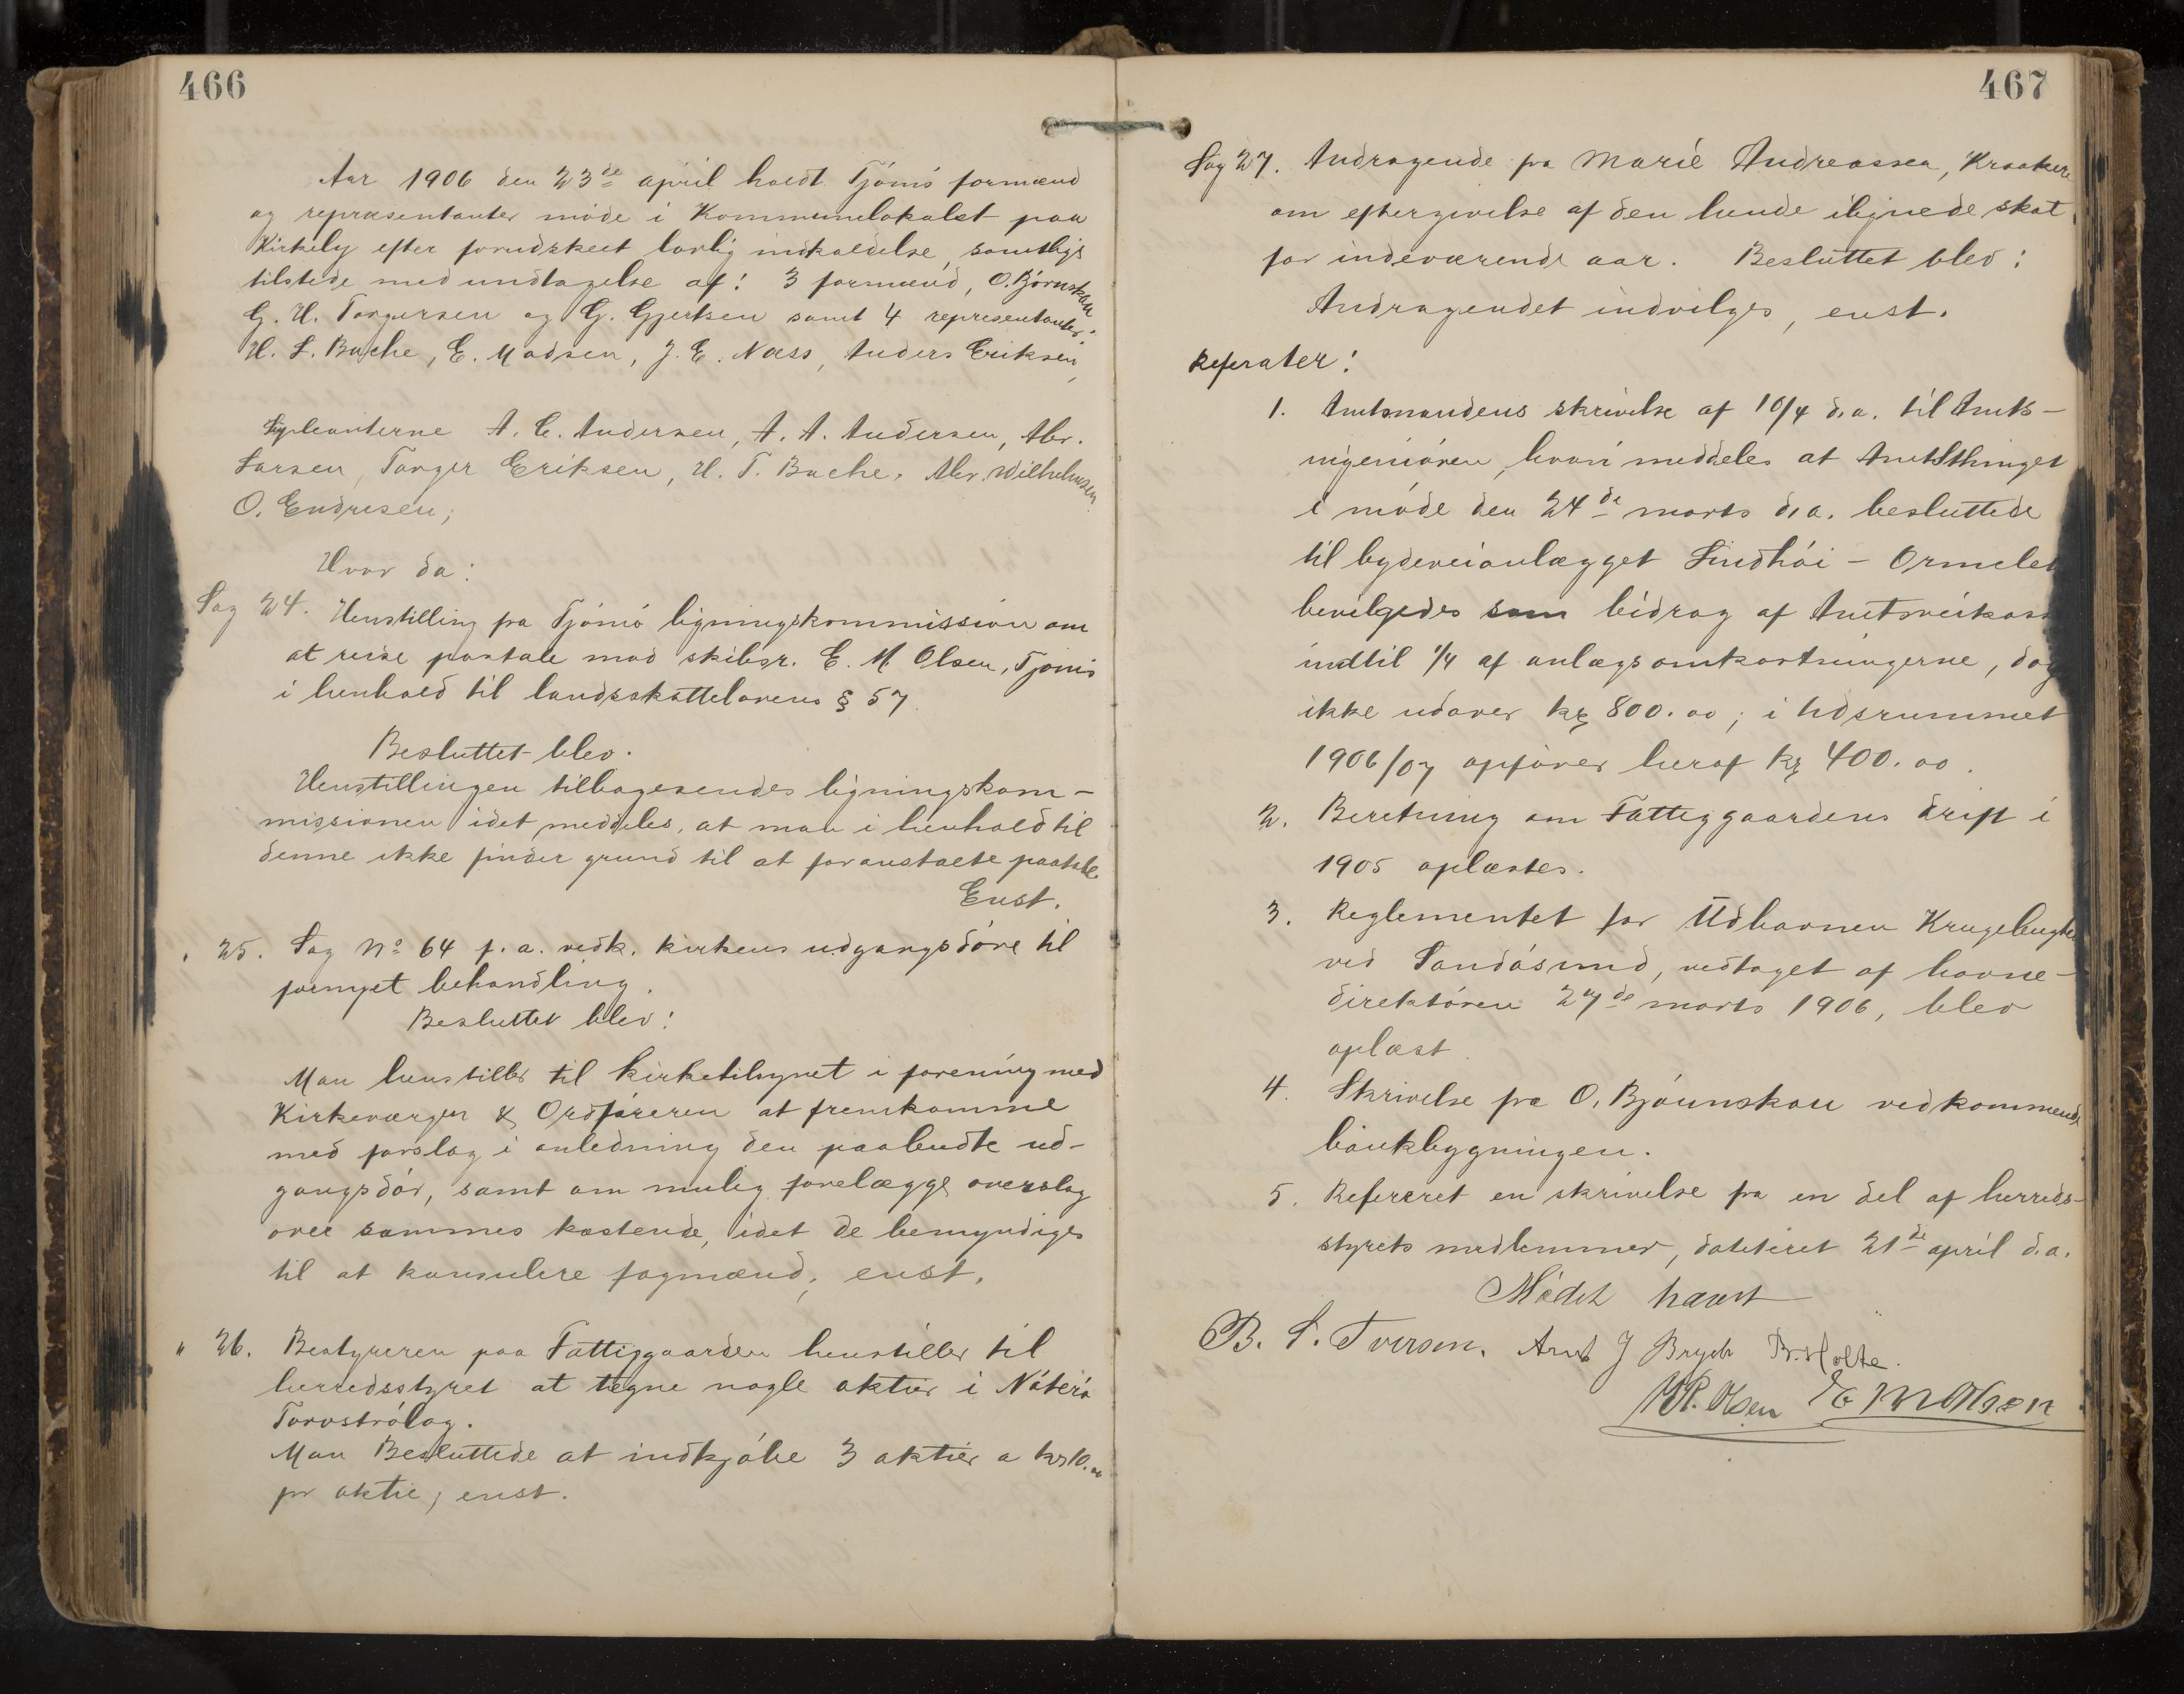 466
Aar 1906 den 23de april holdt Tjømø formænd
og repræsentanter møde i Kommunelokalet paa
Kirkely efter forudskeet lovlig indkaldelse, samtlige
tilstede med undtagelse af: 3 formænd, O. Bjørnskau
G. H. Torgersen og G. Gjertsen samt 4 representanter:
H. L. Bache, E. Madsen, J. E. Næss, Anders Eriksen,
Supleanterne A. C. Andersen, A. A. Andersen, Abr.
Larsen, Torger Eriksen, H. T. Bache, Abr. Wilhelmsen
O. Endresen;
Hvor da:
Sag 24. Henstilling fra Tjømø ligningskommission om
at reise paatale mod skibsr. E. M. Olsen, Tjømø
i henhold til landsskattelovens § 57.
Besluttet blev.
Henstillingen tilbagesendes ligningskom-
missionen idet meddeles, at man i henhold til
denne ikke finder grund til at foranstalte paatale
Enst.
" 25. Sag No 64 f. a. vedk. kirkens udgangsdøre til
fornyet behandling.
Besluttet blev:
Man henstiller til kirketilsynet i forening med
Kirkeværgen & Ordføreren at fremkomme
med forslag i anledning den paabudte ud-
gangsdør, samt om mulig forelægge overslag
over sammes kostende, idet de bemyndiges
til at konsulere fagmænd, enst.
" 26. Bestyreren paa Fattiggaarden henstiller til
herredsstyret at tegne nogle aktier i Nøterø
Torvstrølag.
Man Besluttede at indkjøbe 3 aktier a kr 10.00
pr aktie, enst.
467
Sag 27. Andragende fra Marie Andreassen, Kraakere
om eftergivelse af den hende ilignede skat
for indeværende aar. Besluttet blev:
Andragendet indvilges, enst.
Referater:
1. Amtmandens skrivelse af 10/4 d.a. til Amts-
ingeniøren, hvori meddeles at Amtsthinget
i møde den 24de marts d.a. besluttede
til bygdeveianlægget Lindhøi - Ormelet
bevilgedes som bidrag af Amtsveikass
indtil 1/4 af anlægsomkostningerne, dog
ikke udover kr 800.00; i tidsrummet
1906/07 opføres heraf kr 400.00.
2. Beretning om Fattiggaardens drift i
1905 oplæstes.
3. Reglementet for Udhavnen Krugebugten
ved Sandøsund, vedtaget af havne-
direktøren 27de marts 1906, blev
oplæst.
4. Skrivelse fra O. Bjørnskau vedkommende
bankbygningen.
5. Refereret en skrivelse fra en del af herreds-
styrets medlemmer, dateteret 21de april d.a.
Mødet hævet
B. L. Iversen. Arnt J Brych B. Holte.
H R. Olsen E M Olsen